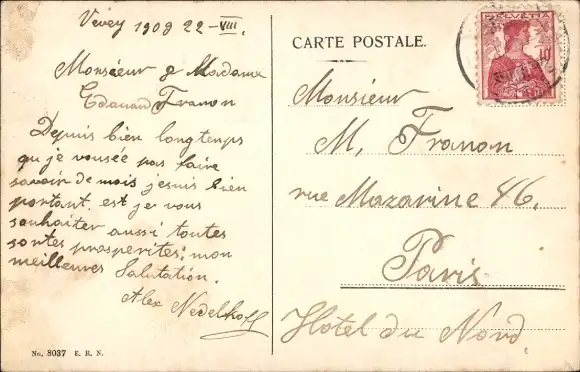 Vevey 1909 22-VIII.
Monsieur & Madame
Edouard Franon
Depuis bien longtemps
qu je vousée pas faire
savoir de mois jesuis bien
portant est je vous
souhaiter aussi toutes
sortes prosperites; mon
meilleures Salutation.
Alex Nedelkoff
No. 8037 E. R. N.
CARTE POSTALE.
HELVETIA
10
Monsieur
M, Franon
rue Mazarine 46.
Paris
Hotel du Nord